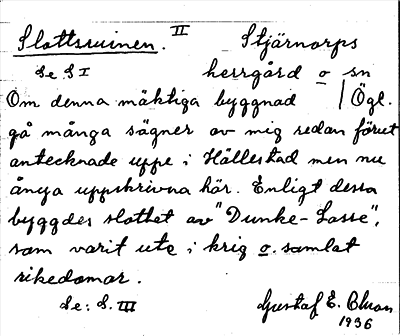 Slottsruinen. II Stjärnorps
Se S I herrgård o sn
Om denna mäktiga byggnad | Ögl.
gå många sägner av mig redan förut
antecknade uppe i Hällestad men nu
ånya uppskrivna här. Enligt dessa
byggdes slottet av "Dunke-Lasse",
som varit ute i krig o. samlat
rikedomar.
Se: S. III Gustaf E. Bluon
1936